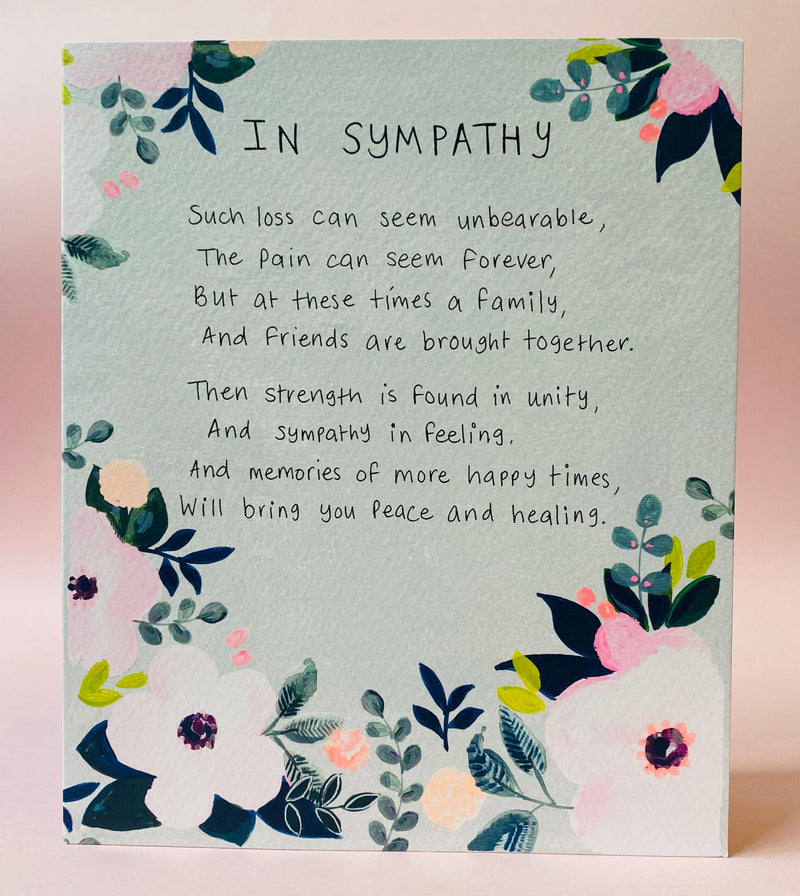 IN SYMPATHY
Such loss can seem unbearable,
The Pain can seem Forever,
But at these times a family,
And Friends are brought together.
Then strength is found in unity,
And sympathy in feeling.
And memories of more happy times,
Will bring you Peace and healing.